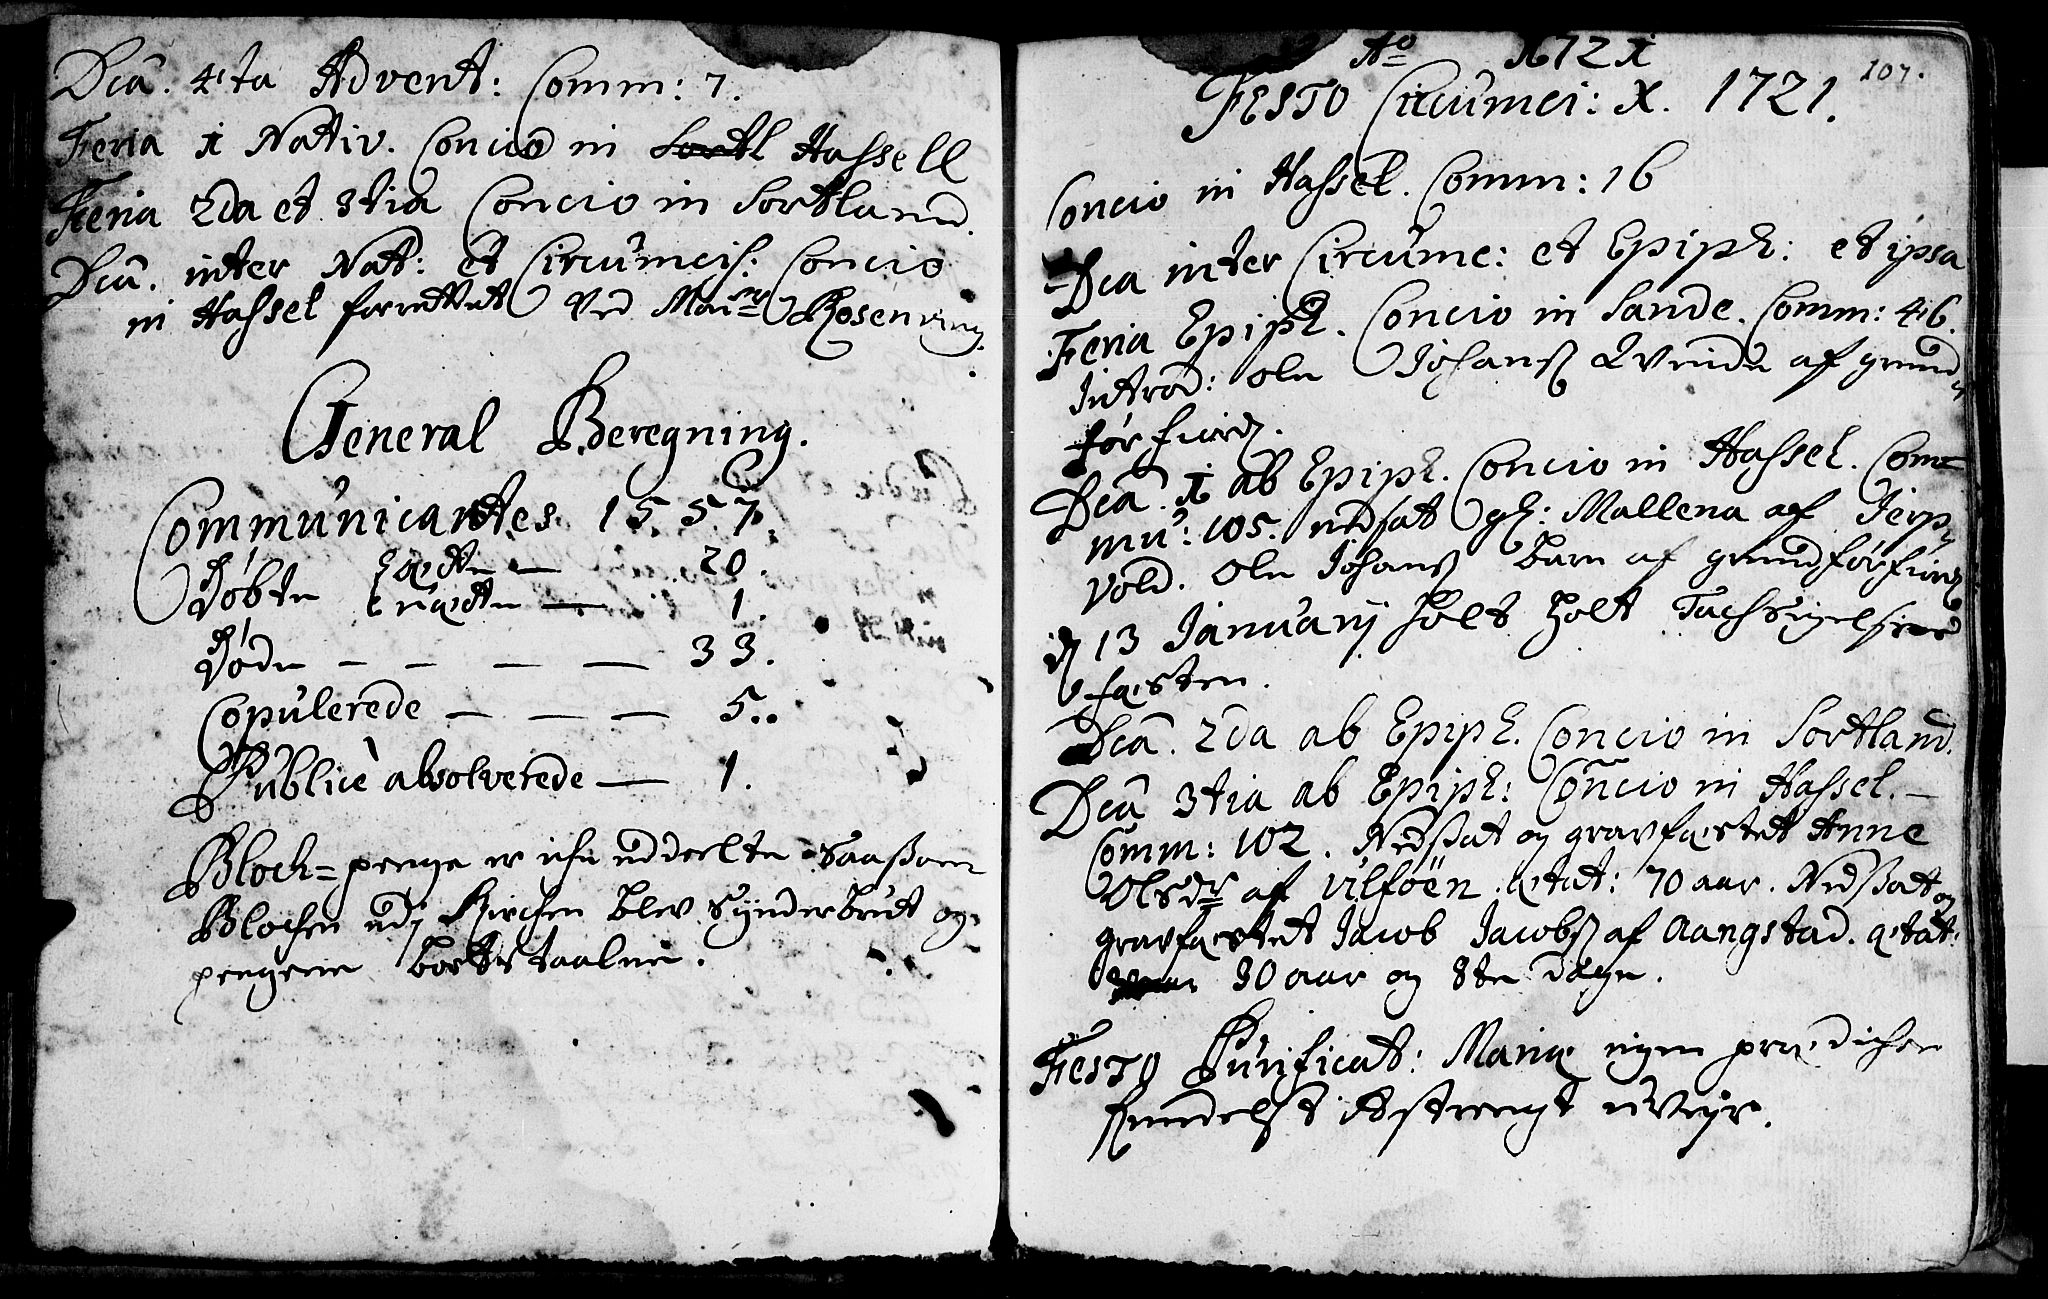 Dcâ. 4ta Advent: Comm: 7.
Feria 1 Nativ. Concio in Sortl Hassell
Feria 2da et 3tia Concio in Sortland.
Dcâ. inter Nat: et Circumcis: Concio
in Hassel forrettet ved Monsr Rosenving
General Beregning.
Communicantes 1557.
Døbte ægte — 20.
uægte — 1.
Døde — — — — 33.
Copulerede — — — 5..
Publicè absolverede — 1.
Bloch=penge er iche uddeelte saasom
Blochen udj Kirchen blev synderbrut og
pengene bortstaalne.
107.
Ao 1721
Festo Circumci: X. 1721.
Concio in Hassel. Comm: 16
Dca inter Circumc: et Epiph: et ipsa
Feria Epiph. Concio in Sande. Comm: 46.
Introd: Ole Johans Qvinde af grund
førfiord.
Dcâ. 1 ab Epiph. Concio in Hassel. Com=
mu: 105. nedsat gl: Mallena af Jerp
vold. Ole Johans barn af grundførfiord
d 13 Januarij holt Tachsigelses
fæsten.
Dcâ. 2da ab Epiph. Concio in Sortland.
Dcâ 3tia ab Epiph: Concio in Hassel. —
Comm: 102. Nedsat og gravfæstet Anne
Olsdr af Ulføen. ætat: 70 aar. Nedsat og
gravfæstet Jacob Jacobs af Aangstad. ætat:
30 aar og 8te dage.
Festo Purificat: Mariæ ingen prædichen
formedelst strengt uveyr.